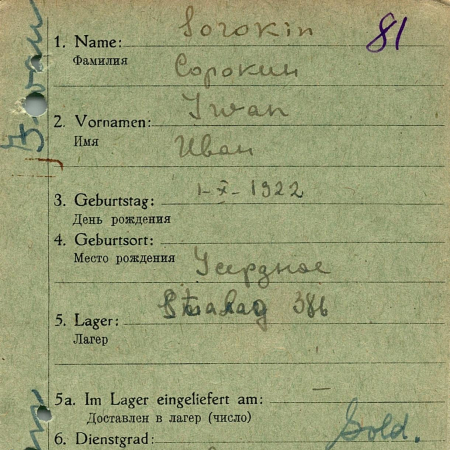 1. Name: Sorokin 81
Фамилия
Сорокин
2. Vornamen: Iwan
Имя
Иван
3. Geburtstag: 1-X-1922
День рождения
4. Geburtsort:
Место рождения Усердное
5. Lager: Stalag 386
Лагер
5a. Im Lager eingeliefert am: —
Доставлен в лагер (число)
6. Dienstgrad: Sold.